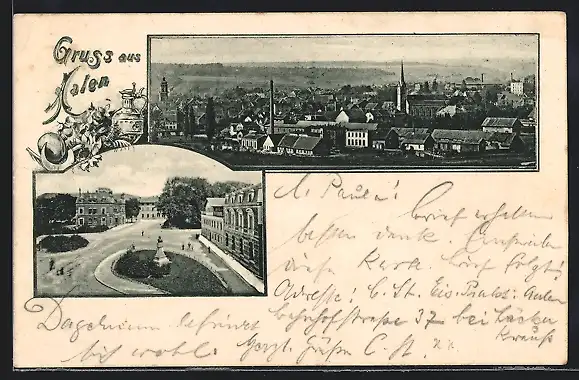 Gruss aus
Aalen
L. Paula!
Brief erhalten
besten Dank.
diese Karte. Brief folgt!
Adresse: C. St. Aalen
Bahnhofstraße 37 bei Bäcker
Krauß
Daheim befindet
sich wohl. Grüßen C. St.